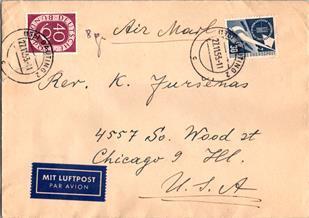 DEUTSCHE BUNDESPOST
40
30
22.11.55-11
8 p.
Air Mail
Rev. K. Jursenas
4557 So. Wood st
Chicago 9 Ill.
U.S.A
MIT LUFTPOST
PAR AVION